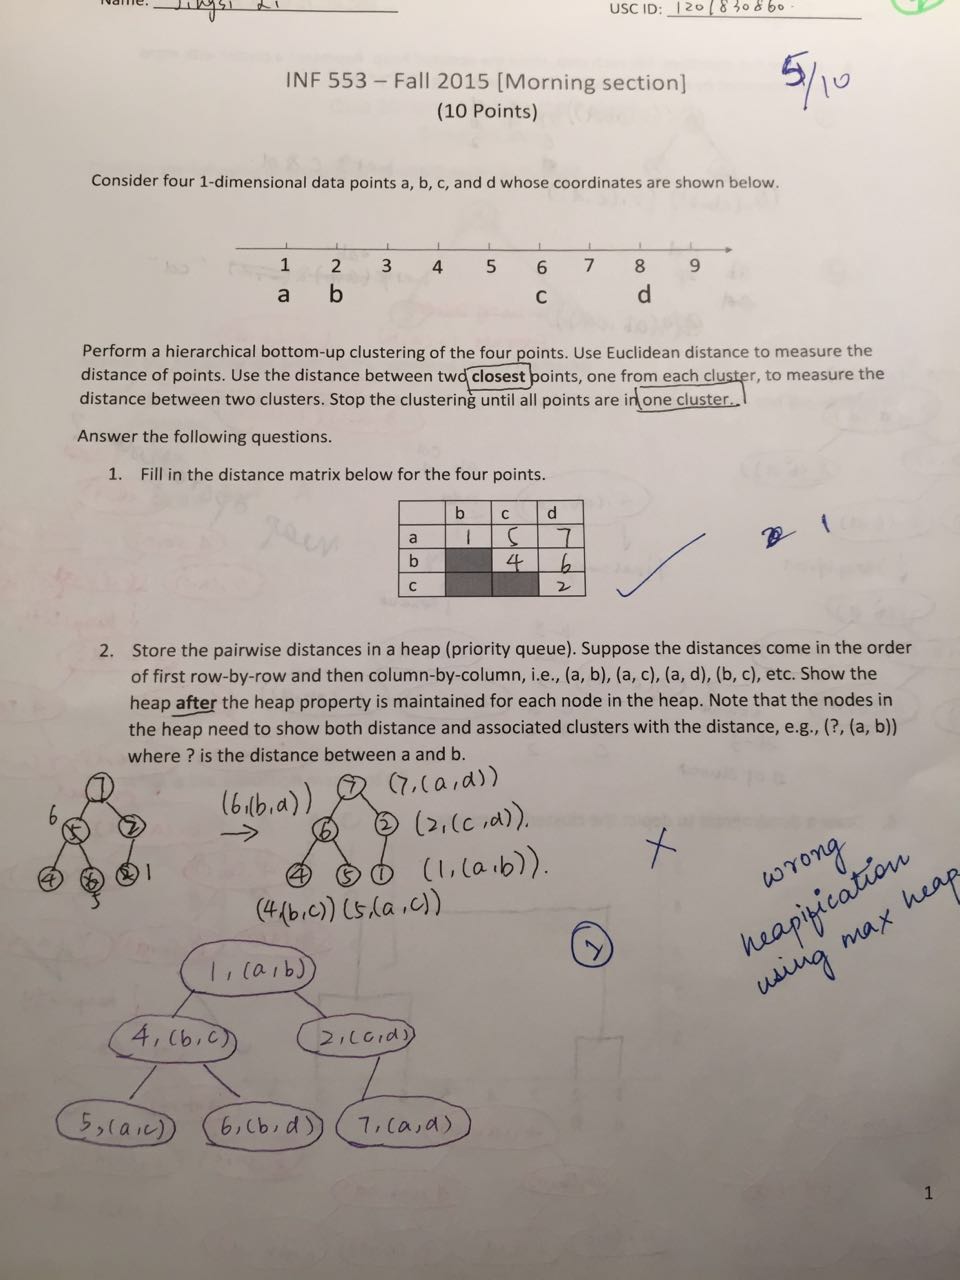 Name: Jingsi Li
USC ID: 1201830860.
INF 553 – Fall 2015 [Morning section]
5/10
(10 Points)
Consider four 1-dimensional data points a, b, c, and d whose coordinates are shown below.
1 2 3 4 5 6 7 8 9
a b c d
Perform a hierarchical bottom-up clustering of the four points. Use Euclidean distance to measure the
distance of points. Use the distance between two closest points, one from each cluster, to measure the
distance between two clusters. Stop the clustering until all points are in one cluster.
Answer the following questions.
1. Fill in the distance matrix below for the four points.
b c d
a 1 5 7
b 4 6
c 2
1
2. Store the pairwise distances in a heap (priority queue). Suppose the distances come in the order
of first row-by-row and then column-by-column, i.e., (a, b), (a, c), (a, d), (b, c), etc. Show the
heap after the heap property is maintained for each node in the heap. Note that the nodes in
the heap need to show both distance and associated clusters with the distance, e.g., (?, (a, b))
where ? is the distance between a and b.
7
6 5 2
4 1
5
(6,(b,d))
→
7 (7,(a,d))
6 2 (2,(c,d)).
4 5 1 (1,(a,b)).
(4,(b,c)) (5,(a,c))
X
wrong
heapification
using max heap
1, (a,b)
4, (b,c) 2, (c,d)
5, (a,c) 6, (b,d) 7, (a,d)
1